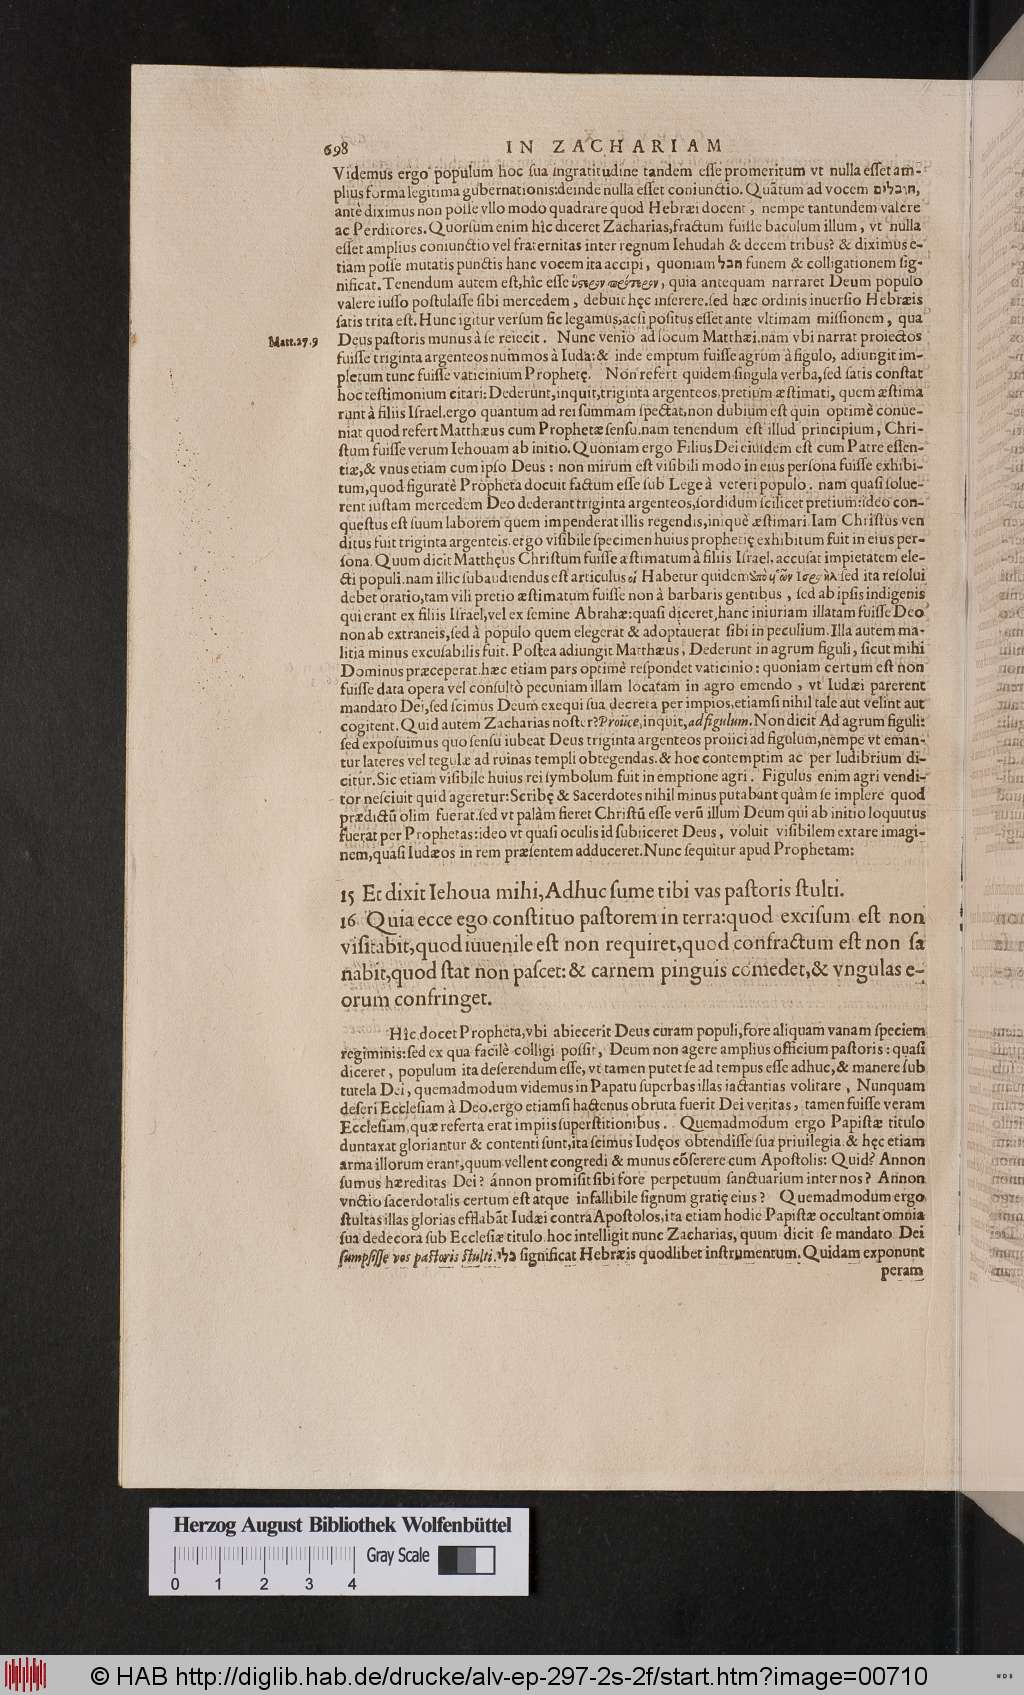 698 IN ZACHARIAM
Videmus ergo populum hoc ſua ingratitudine tandem eſſe promeritum vt nulla eſſet am-
plius forma legitima gubernationis: deinde nulla eſſet coniunctio. Quãtum ad vocem חובלים,
antè diximus non poſſe vllo modo quadrare quod Hebræi docent, nempe tantundem valere
ac Perditores. Quorſum enim hîc diceret Zacharias, fractum fuiſſe baculum illum, vt nulla
eſſet amplius coniunctio vel fraternitas inter regnum Iehudah & decem tribus? & diximus e-
tiam poſſe mutatis punctis hanc vocem ita accipi, quoniam חבל funem & colligationem ſig-
nificat. Tenendum autem eſt, hîc eſſe ὕστερον πρότερον, quia antequam narraret Deum populo
valere iuſſo poſtulaſſe ſibi mercedem, debuit hęc inſerere. ſed hæc ordinis inuerſio Hebræis
ſatis trita eſt. Hunc igitur verſum ſic legamus, acſi poſitus eſſet ante vltimam miſſionem, qua
Matt. 27.9 Deus paſtoris munus à ſe reiecit. Nunc venio ad locum Matthæi. nam vbi narrat proiectos
fuiſſe triginta argenteos nummos à Iuda: & inde emptum fuiſſe agrum à figulo, adiungit im-
pletum tunc fuiſſe vaticinium Prophetę. Non refert quidem ſingula verba, ſed ſatis conſtat
hoc teſtimonium citari: Dederunt, inquit, triginta argenteos, pretium æſtimati, quem æſtima
runt à filiis Iſrael. ergo quantum ad rei ſummam ſpectat, non dubium eſt quin optimè conue-
niat quod refert Matthæus cum Prophetæ ſenſu. nam tenendum eſt illud principium, Chri-
ſtum fuiſſe verum Iehouam ab initio. Quoniam ergo Filius Dei eiuſdem eſt cum Patre eſſen-
tiæ, & vnus etiam cum ipſo Deus: non mirum eſt viſibili modo in eius perſona fuiſſe exhibi-
tum, quod figuratè Propheta docuit factum eſſe ſub Lege à veteri populo. nam quaſi ſolue-
rent iuſtam mercedem Deo dederant triginta argenteos, ſordidum ſcilicet pretium: ideo con-
queſtus eſt ſuum laborem quem impenderat illis regendis, iniquè æſtimari. Iam Chriſtus ven
ditus fuit triginta argenteis. ergo viſibile ſpecimen huius prophetię exhibitum fuit in eius per-
ſona. Quum dicit Matthęus Chriſtum fuiſſe æſtimatum à filiis Iſrael, accuſat impietatem ele-
cti populi. nam illic ſubaudiendus eſt articulus οἱ Habetur quidem ὑπὸ υἱῶν Ισραὴλ ſed ita reſolui
debet oratio, tam vili pretio æſtimatum fuiſſe non à barbaris gentibus, ſed ab ipſis indigenis
qui erant ex filiis Iſrael, vel ex ſemine Abrahæ: quaſi diceret, hanc iniuriam illatam fuiſſe Deo
non ab extraneis, ſed à populo quem elegerat & adoptauerat ſibi in peculium. Illa autem ma-
litia minus excuſabilis fuit. Poſtea adiungit Matthæus, Dederunt in agrum figuli, ſicut mihi
Dominus præceperat. hæc etiam pars optimè reſpondet vaticinio: quoniam certum eſt non
fuiſſe data opera vel conſultò pecuniam illam locatam in agro emendo, vt Iudæi parerent
mandato Dei, ſed ſcimus Deum exequi ſua decreta per impios, etiamſi nihil tale aut velint aut
cogitent. Quid autem Zacharias noſter? Proiice, inquit, ad figulum. Non dicit Ad agrum figuli:
ſed expoſuimus quo ſenſu iubeat Deus triginta argenteos proiici ad figulum, nempe vt eman-
tur lateres vel tegulæ ad ruinas templi obtegendas. & hoc contemptim ac per ludibrium di-
citur. Sic etiam viſibile huius rei ſymbolum fuit in emptione agri. Figulus enim agri vendi-
tor neſciuit quid ageretur: Scribę & Sacerdotes nihil minus putabant quàm ſe implere quod
prædictũ olim fuerat. ſed vt palàm fieret Chriſtũ eſſe verũ illum Deum qui ab initio loquutus
fuerat per Prophetas: ideo vt quaſi oculis id ſubiiceret Deus, voluit viſibilem extare imagi-
nem, quaſi Iudæos in rem præſentem adduceret. Nunc ſequitur apud Prophetam:
15 Et dixit Iehoua mihi, Adhuc ſume tibi vas paſtoris ſtulti.
16 Quia ecce ego conſtituo paſtorem in terra: quod exciſum eſt non
viſitabit, quod iuuenile eſt non requiret, quod confractum eſt non ſa
nabit, quod ſtat non paſcet: & carnem pinguis comedet, & vngulas e-
orum confringet.
Hîc docet Propheta, vbi abiecerit Deus curam populi, fore aliquam vanam ſpeciem
regiminis: ſed ex qua facilè colligi poſſit, Deum non agere amplius officium paſtoris: quaſi
diceret, populum ita deſerendum eſſe, vt tamen putet ſe ad tempus eſſe adhuc, & manere ſub
tutela Dei, quemadmodum videmus in Papatu ſuperbas illas iactantias volitare, Nunquam
deſeri Eccleſiam à Deo. ergo etiamſi hactenus obruta fuerit Dei veritas, tamen fuiſſe veram
Eccleſiam, quæ referta erat impiis ſuperſtitionibus. Quemadmodum ergo Papiſtæ titulo
duntaxat gloriantur & contenti ſunt, ita ſcimus Iudęos obtendiſſe ſua priuilegia. & hęc etiam
arma illorum erant, quum vellent congredi & munus cõſerere cum Apoſtolis: Quid? Annon
ſumus hæreditas Dei? ánnon promiſit ſibi fore perpetuum ſanctuarium inter nos? Annon
vnctio ſacerdotalis certum eſt atque infallibile ſignum gratię eius? Quemadmodum ergo
ſtultas illas glorias efflabãt Iudæi contra Apoſtolos, ita etiam hodie Papiſtæ occultant omnia
ſua dedecora ſub Eccleſiæ titulo. hoc intelligit nunc Zacharias, quum dicit ſe mandato Dei
ſumpſiſſe vas paſtoris ſtulti. כלי ſignificat Hebræis quodlibet inſtrumentum. Quidam exponunt
peram
Herzog August Bibliothek Wolfenbüttel
Gray Scale
0 1 2 3 4
© HAB http://diglib.hab.de/drucke/alv-ep-297-2s-2f/start.htm?image=00710